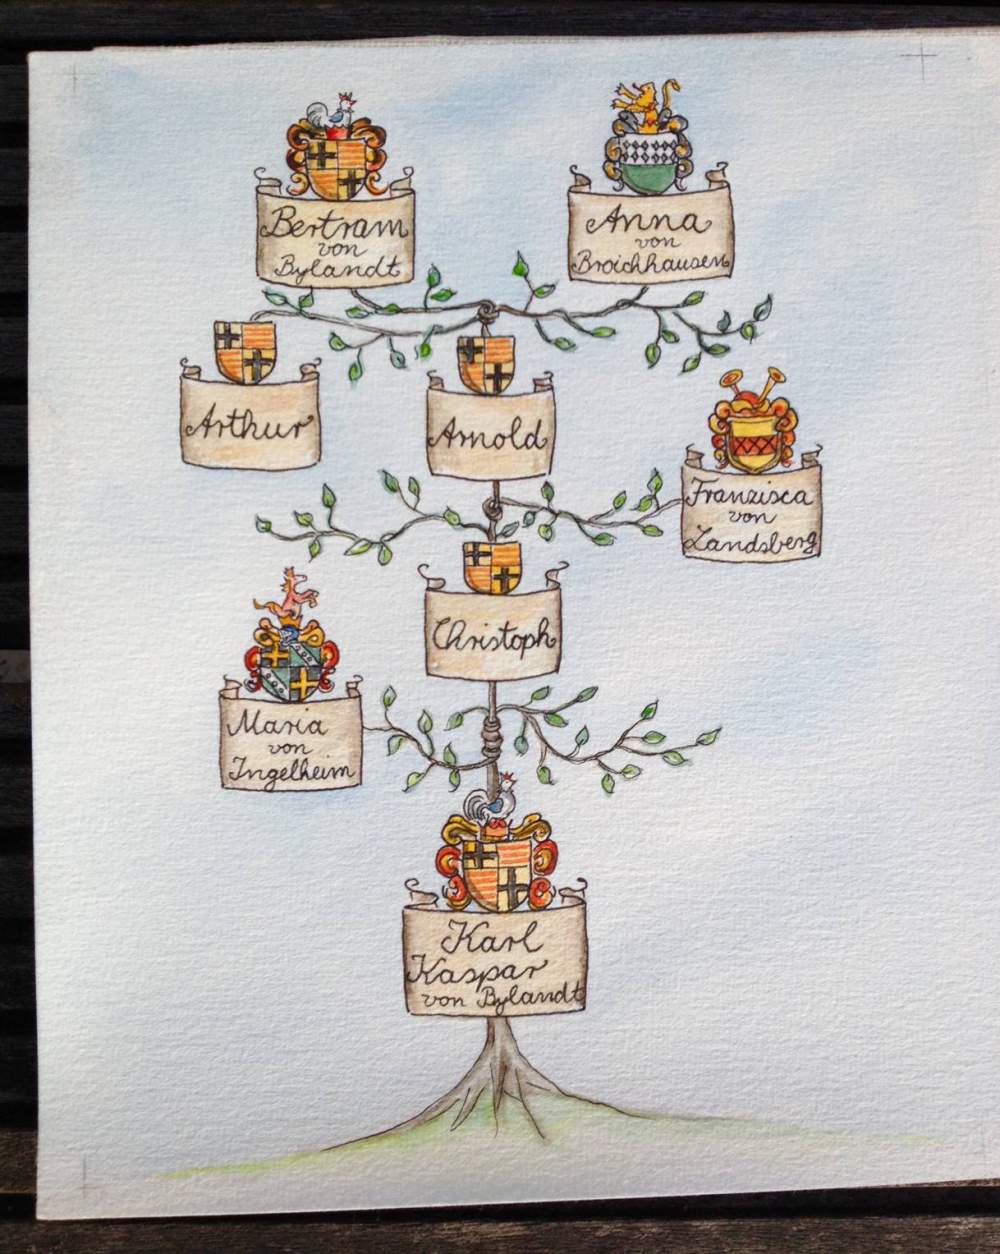 Bertram
von
Bylandt
Anna
von
Broichhausen
Arthur
Arnold
Franzisca
von
Landsberg
Christoph
Maria
von
Ingelheim
Karl
Kaspar
von Bylandt